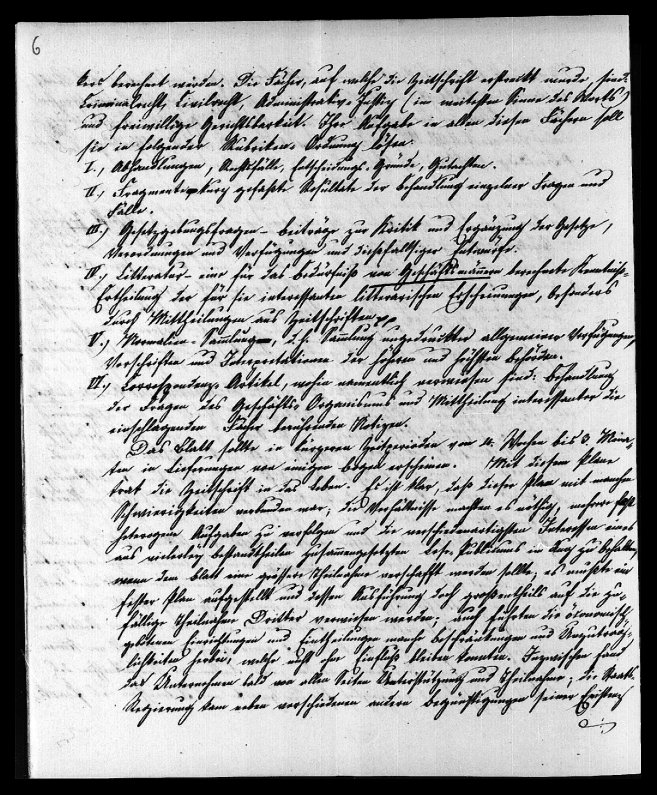 6
kers berechnet wurden. Die Fächer, auf welche die Zeitschrift erstreckt wurde, sind:
Criminalrecht, Civilrecht, Administrativ-Justiz (im weitesten Sinne des Worts)
und freiwillige Gerichtsbarkeit. Ihre Aufgabe in allen diesen Fächern soll
sie in folgender Rubriken-Ordnung lösen:
I., Abhandlungen, Rechtsfälle, Entscheidungs-Gründe, Gutachten.
II., Fragmente, kurz gefaßte Resultate der Behandlung einzelner Fragen und
Fälle.
III., Gesetzgebungsfragen – Beiträge zur Kritik und Ergänzung der Gesetze,
Verordnungen und Verfügungen und dießfallsiger Entwürfe.
IV., Litteratur – eine für das Bedürfniß von Geschäftsmännern berechnete Kenntniß-
Ertheilung der für sie interessanten litterarischen Erscheinungen, besonders
durch Mittheilungen aus Zeitschriften pp
V., Normalien-Sammlung, d. h. Sammlung ungedruckter allgemeiner Verfügungen,
Vorschriften und Interpretationen der höhern und höchsten Behörden.
VI., Correspondenz-Artikel, wohin namentlich verwiesen sind: Behandlung
der Fragen des Geschäfts-Organismus und Mittheilung interessanter die
einschlagenden Fächer berührenden Notizen.
Das Blatt sollte in kürzeren Zeitperioden von 4 Wochen bis 3 Mona-
ten in Lieferungen von einigen Bogen erscheinen. Mit diesem Plane
trat die Zeitschrift in das Leben. Es ist klar, daß dieser Plan mit manchen
Schwierigkeiten verbunden war; die Verhältnisse machten es nöthig, mehrere fast
heterogene Aufgaben zu verfolgen und die verschiedenartigsten Interessen eines
aus vielerley Bestandtheilen zusammengesetzten Lese-Publikums im Aug zu behalten,
wenn dem Blatt eine größere Theilnahme verschafft werden sollte; es mußte ein
fester Plan aufgestellt und dessen Ausführung doch großentheils auf die zu-
fällige Theilnahme Dritter verwiesen werden; auch führten die ökonomisch
gebotenen Einrichtungen und Eintheilungen manche Beschränkungen und Unzuträg-
lichkeiten herbei, welche nicht ohne Einfluß bleiben konnten. Inzwischen fand
das Unternehmen bald von allen Seiten Unterstützung und Theilnahme; die Staats-
Regierung kam neben verschiedenen andern Begünstigungen seiner Existenz